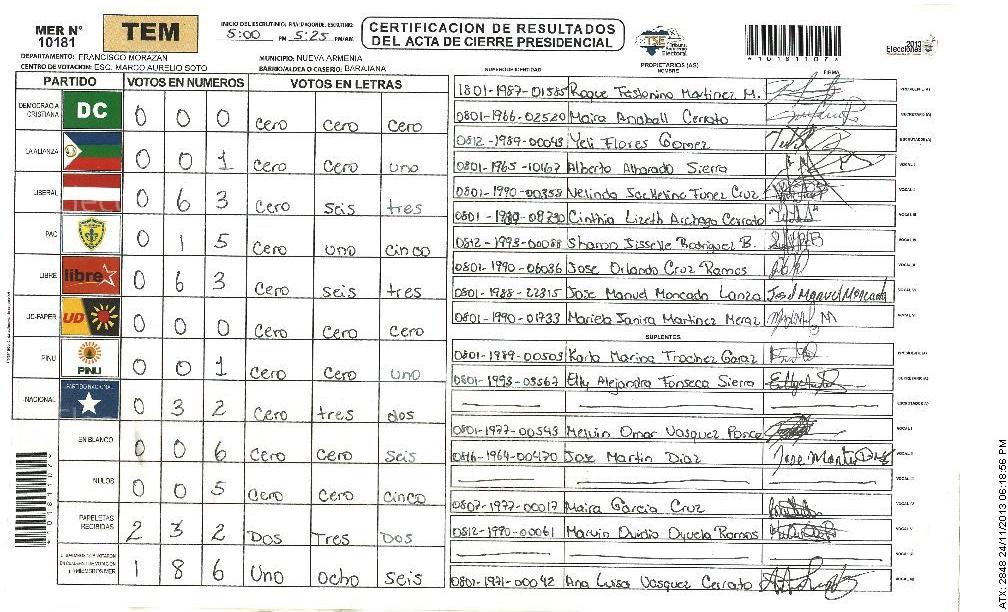 MER N° 10181
TEM
INICIO DEL ESCRUTINIO: 5:00 PM
5:25 PM/AM.
CERTIFICACION DE RESULTADOS
DEL ACTA DE CIERRE PRESIDENCIAL
TSE Tribunal Supremo Electoral
*1018110?*
2013 Elecciones
DEPARTAMENTO: FRANCISCO MORAZAN
MUNICIPIO: NUEVA ARMENIA
CENTRO DE VOTACION: ESC. MARCO AURELIO SOTO
BARRIO/ALDEA O CASERIO: BARAJANA
PARTIDO VOTOS EN NUMEROS VOTOS EN LETRAS
DEMOCRACIA CRISTIANA DC 0 0 0 Cero Cero Cero
LA ALIANZA 0 0 1 Cero Cero uno
LIBERAL 0 6 3 Cero seis tres
PAC 0 1 5 Cero uno cinco
LIBRE libre 0 6 3 Cero seis tres
UD-FAPER UD 0 0 0 Cero Cero Cero
PINU PINU 0 0 1 Cero Cero uno
NACIONAL PARTIDO NACIONAL 0 3 2 Cero tres dos
EN BLANCO 0 0 6 Cero Cero seis
NULOS 0 0 5 Cero Cero cinco
PAPELETAS RECIBIDAS 2 3 2 Dos Tres Dos
1 8 6 Uno ocho seis
NUMERO IDENTIDAD PROPIETARIOS (AS) NOMBRE FIRMA
1801-1987-01585 Roque Martinez M. PRESIDENTE (A)
0801-1966-02520 Maira Anaball Cerrato SECRETARIO (A)
0812-1989-00043 Yeli Flores Gomez ESCRUTADOR (A)
0801-1965-10167 Alberto Alvarado Sierra VOCAL I
0801-1990-00358 Funez Cruz VOCAL II
Cinthia Lizeth Cerrato VOCAL III
0812-1993-00088 Sharon Jisselle Rodriguez B. VOCAL IV
0801-1990-06036 Jose Orlando Cruz Ramos VOCAL V
0801-1988-22315 Jose Manuel Moncada Lanza Jose Manuel Moncada VOCAL VI
0801-1990-01733 Mariela Janira Martinez Meraz VOCAL VII
SUPLENTES
0801-1989-00503 Karla Marina Trochez PRESIDENTE (A)
0801-1993-03567 Elly Alejandra Fonseca Sierra SECRETARIO (A)
ESCRUTADOR (A)
0801-1977-00543 Melvin Omar Vasquez Ponce VOCAL I
0816-1964-00470 Jose Martin Diaz Jose Martin Diaz VOCAL II
VOCAL III
0807-1977-00017 Maira Garcia Cruz VOCAL IV
0812-1990-00061 Marvin Oyuela Ramos VOCAL V
0801-1971-00042 Ana Luisa Vasquez Cerrato VOCAL VII
ATX-2848 24/11/2013 06:18:56 PM